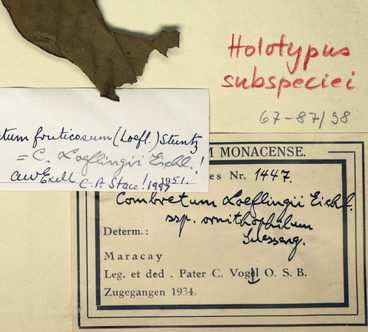 Holotypus
subspeciei
67-87/98
etum fruticosum (Loefl.) Stuntz
= C. Loeflingii Eichl.!
AWExell 1951.
C.A. Stace! 1999
M MONACENSE.
es Nr. 1447.
Combretum Loeflingii Eichl.
ssp. ornithophilum
Suesseng.
Determ.:
Maracay
Leg. et ded. Pater C. Vogl O. S. B.
Zugegangen 1934.